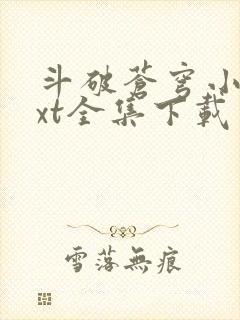 斗破蒼穹小
xt全集下載
雪落無痕